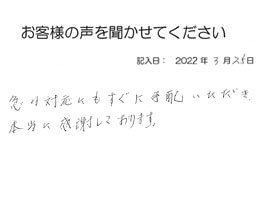 お客様の声を聞かせてください
記入日： 2022 年 3 月 25 日
急な対応にもすぐに手配いただき、
本当に感謝しております。